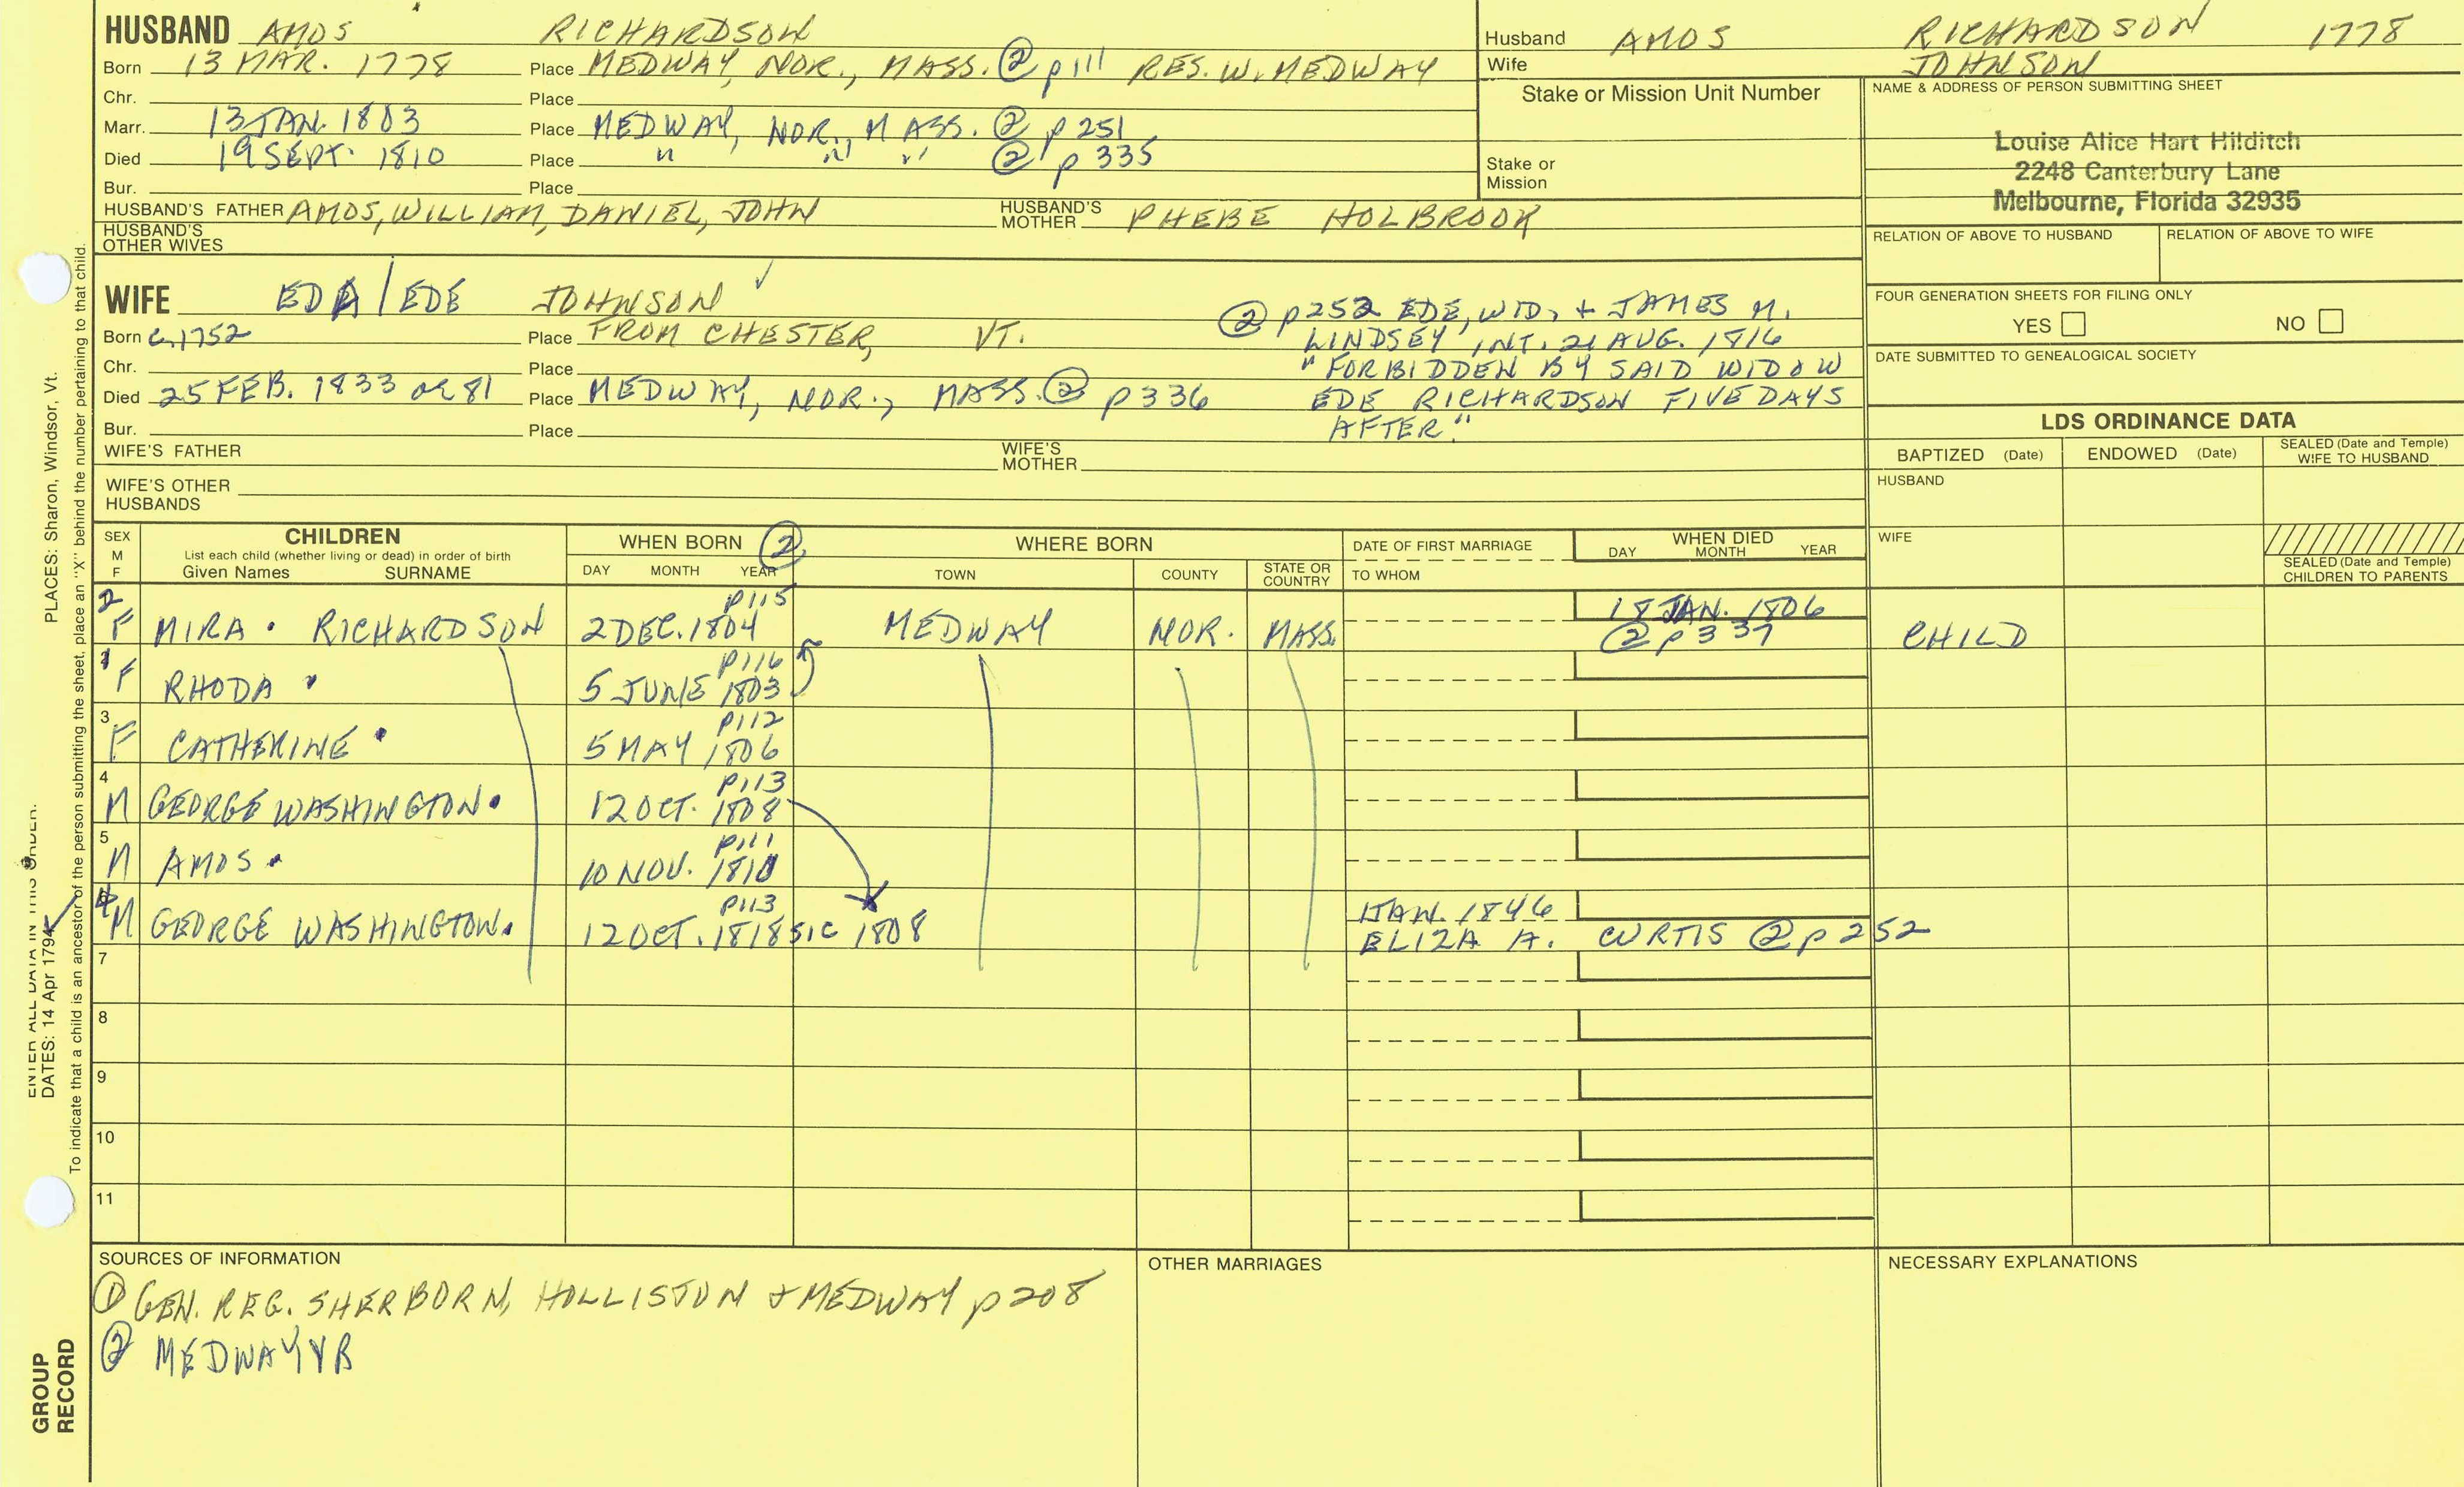 HUSBAND AMOS RICHARDSON
Born 13 MAR. 1778 Place MEDWAY, NOR., MASS. @ p111 RES. W. MEDWAY
Chr. Place
Marr. 13 JAN. 1803 Place MEDWAY, NOR., MASS. ② p 251
Died 19 SEPT. 1810 Place " " " ② p 335
Bur. Place
HUSBAND'S FATHER AMOS, WILLIAM, DANIEL, JOHN HUSBAND'S MOTHER PHEBE HOLBROOK
HUSBAND'S OTHER WIVES
Husband AMOS RICHARDSON 1778
Wife JOHNSON
Stake or Mission Unit Number
Stake or Mission
NAME & ADDRESS OF PERSON SUBMITTING SHEET
Louise Alice Hart Hilditch
2248 Canterbury Lane
Melbourne, Florida 32935
RELATION OF ABOVE TO HUSBAND RELATION OF ABOVE TO WIFE
FOUR GENERATION SHEETS FOR FILING ONLY
YES NO
DATE SUBMITTED TO GENEALOGICAL SOCIETY
WIFE EDA / EDE JOHNSON ✓
Born c. 1752 Place FROM CHESTER, VT.
Chr. Place
Died 25 FEB. 1833 ae 81 Place MEDWAY, NOR., MASS. ② p 336
Bur. Place
② p252 EDE, WID, + JAMES M.
LINDSEY INT. 21 AUG. 1816
"FORBIDDEN BY SAID WIDOW
EDE RICHARDSON FIVE DAYS
AFTER."
WIFE'S FATHER WIFE'S MOTHER
WIFE'S OTHER HUSBANDS
LDS ORDINANCE DATA
BAPTIZED (Date) ENDOWED (Date) SEALED (Date and Temple) WIFE TO HUSBAND
HUSBAND
WIFE
SEALED (Date and Temple) CHILDREN TO PARENTS
SEX M F
CHILDREN
List each child (whether living or dead) in order of birth
Given Names SURNAME
WHEN BORN ②
DAY MONTH YEAR
WHERE BORN
TOWN COUNTY STATE OR COUNTRY
DATE OF FIRST MARRIAGE
TO WHOM
WHEN DIED
DAY MONTH YEAR
2 p115 18 JAN. 1806
F MIRA • RICHARDSON 2 DEC. 1804 MEDWAY NOR. MASS. ② p 337 CHILD
1 p116
F RHODA • 5 JUNE 1803
3 p112
F CATHERINE • 5 MAY 1806
4 p113
M GEORGE WASHINGTON • 12 OCT. 1808
5 p111
M AMOS • 10 NOV. 1810
4 p113 1 JAN. 1846
M GEORGE WASHINGTON. 12 OCT. 1818 SIC 1808 ELIZA A. CURTIS ② p 252
7
8
9
10
11
SOURCES OF INFORMATION
① GEN. REG. SHERBORN, HOLLISTON & MEDWAY p 208
② MEDWAY VR
OTHER MARRIAGES
NECESSARY EXPLANATIONS
ENTER ALL DATA IN THIS ORDER.
DATES: 14 Apr 1794 PLACES: Sharon, Windsor, Vt.
To indicate that a child is an ancestor of the person submitting the sheet, place an "X" behind the number pertaining to that child.
GROUP
RECORD